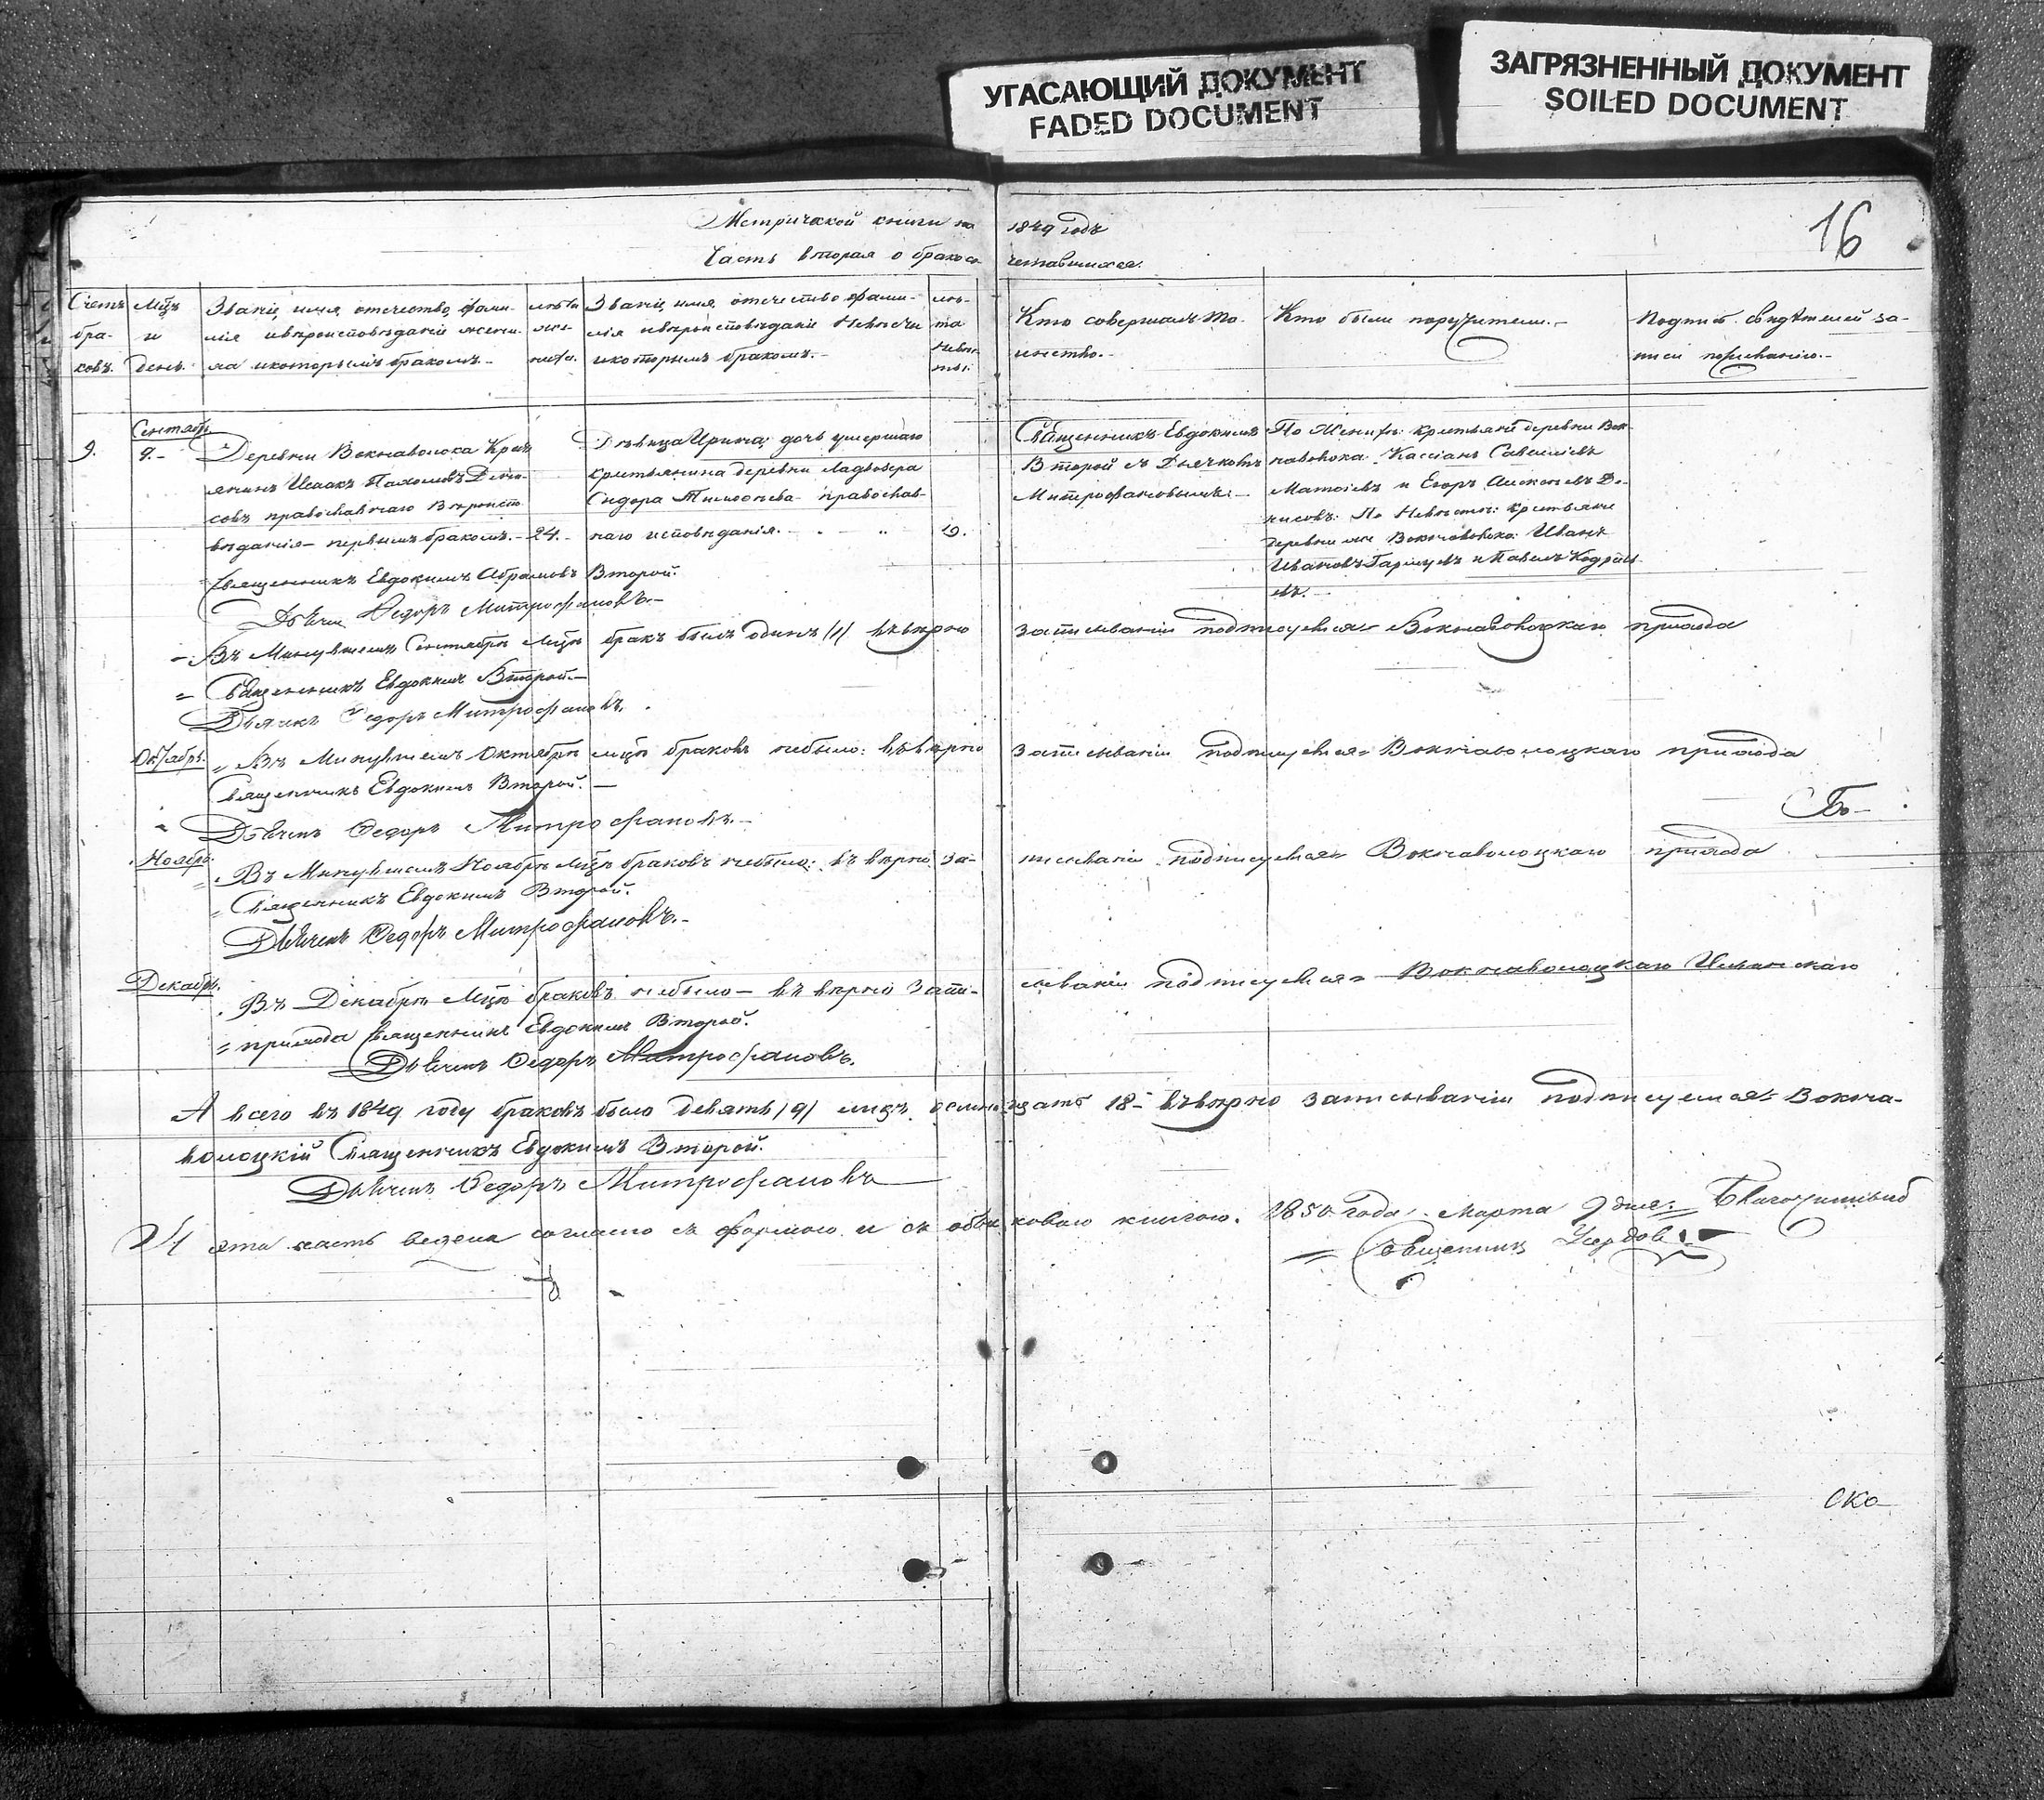 УГАСАЮЩИЙ ДОКУМЕНТ
FADED DOCUMENT
ЗАГРЯЗНЕННЫЙ ДОКУМЕНТ
SOILED DOCUMENT
16
Метрической книги на 1849 годъ
Часть вторая о бракосочетавшихся.
Счетъ
бра-
ковъ.
Мцъ
и
день.
Званіе, имя, отечество, фами-
лія и вѣроисповѣданіе жени-
ха и которымъ бракомъ.-
лѣта
же-
ниха.
Званіе, имя, отечество фами-
лія и вѣроисповѣданіе Невѣсты
и которымъ бракомъ.-
лѣ-
та
Невѣс-
ты.
Кто совершалъ та-
инство.-
Кто были поручители.-
Подпис. свидѣтелей за-
писи по желанію.-
9.
Сентябр.
9.-
Деревни Вокнаволока Крес
янинъ Исаакъ Пахомовъ Дени-
совъ православнаго Вѣроиспо
вѣданія - первымъ бракомъ.-
24.-
Дѣвица Ирина: дочь умершаго
крестьянина деревни Ладвозера
Сидора Тимофеева православ-
наго исповѣданія.
19.
Священникъ Евдокимъ
Второй съ Дьячкомъ
Митрофановымъ.-
По Женихѣ: крестьяне деревни Вок-
наволока: Кассіанъ Савельевъ
и Егоръ Де-
нисовъ: По Невѣстѣ: крестьяне
деревни Вокнаволока: Иванъ
Ивановъ и Павелъ
Священникъ Евдокимъ Абрамовъ Второй.
Дьячекъ Федоръ Митрофановъ.-
Въ Минувшемъ Сентябрѣ Мцѣ бракъ былъ одинъ /1/ въ вѣрно записываніи подписуемся Вокнаволоцкаго прихода
Священникъ Евдокимъ Второй.-
Дьячекъ Федоръ Митрофановъ.
Октябрь. Въ Минувшемъ Октябрѣ мцѣ браковъ небыло: въ вѣрно записываніи подписуемся Вокнаволоцкаго прихода
Священникъ Евдокимъ Второй.-
Бо-
Дьячекъ Федоръ Митрофановъ.-
Ноябрь. Въ Минувшемъ Ноябрѣ Мцѣ браковъ небыло: въ вѣрно за- писываніи подписуемся Вокнаволоцкаго прихода
Священникъ Евдокимъ Второй.
Дьячекъ Федоръ Митрофановъ.-
Декабрь. Въ Декабрѣ Мцѣ браковъ небыло - въ вѣрно запи- сываніи подписуемся Вокнаволоцкаго
прихода Священникъ Евдокимъ Второй.
Дьячекъ Федоръ Митрофановъ.
А всего въ 1849 году браковъ было девять /9/ лицъ осмнадцать 18- въ вѣрно записываніи подписуемся Вокна-
волоцкій Священникъ Евдокимъ Второй.
Дьячекъ Федоръ Митрофановъ
ята часть ведена согласно съ формою и съ книгою. 1850 года Марта 9 дня: Благочинный
Священникъ
ско